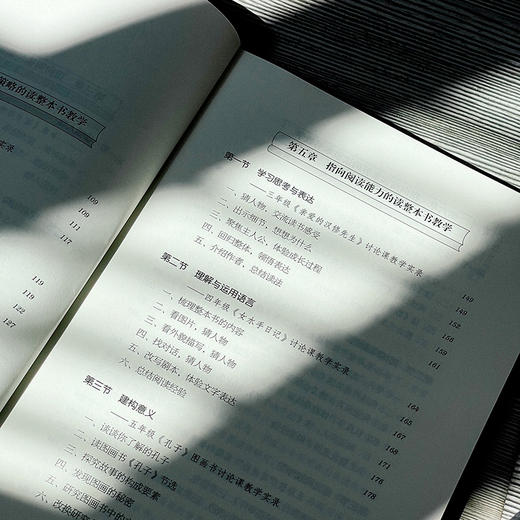 策略的读整本书教学
109
109
111
117
119
122
127
第五章 指向阅读能力的读整本书教学
第一节 学习思考与表达
——三年级《亲爱的汉修先生》讨论课教学实录
一、猜人物，交流读书感受
二、出示细节，想想为什么
三、聚焦主人公，体验成长过程
四、回归整体，领悟表达
五、介绍作者，总结读法
149
149
152
158
159
161
第二节 理解与运用语言
——四年级《女水手日记》讨论课教学实录
一、梳理整本书的内容
二、看图片，猜人物
三、看外貌描写，猜人物
四、找对话，猜人物
五、改写剧本，体验文字表达
六、总结阅读经验
164
165
168
第三节 建构意义
——五年级《孔子》图画书讨论课教学实录
一、谈谈你了解的孔子
二、读图画书《孔子》书选
三、探究故事的构成要素
四、发现图画的秘密
五、研究图画书中的
六、改换研究
171
176
178